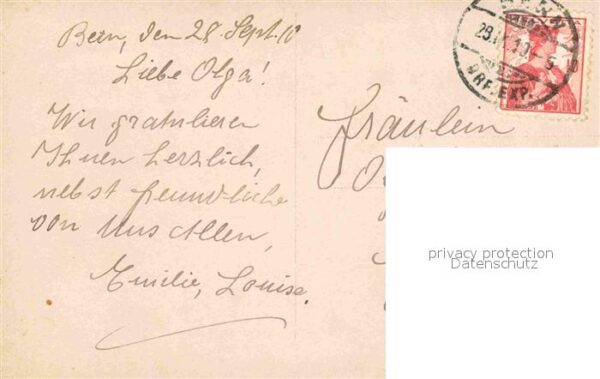 Bern, den 28. Sept. 10
Liebe Olga!
Wir gratulieren
Ihnen herzlich,
nebst freundliche
von uns Allen,
Emilie, Louise.
Fräulein
BRF. EXP.
10
privacy protection
Datenschutz